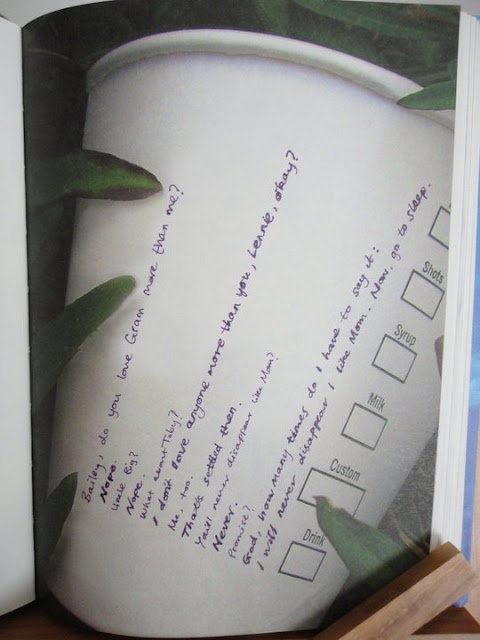 Bailey, do you love Gram more than me?
Nope.
Uncle Big?
Nope.
What about Toby?
I don't love anyone more than you, Lennie, okay?
Me, too.
That's settled then.
You'll never disappear like Mom?
Never.
Promise?
God, how many times do I have to say it:
I will never disappear like Mom. Now, go to sleep.
Shots
Syrup
Milk
Custom
Drink